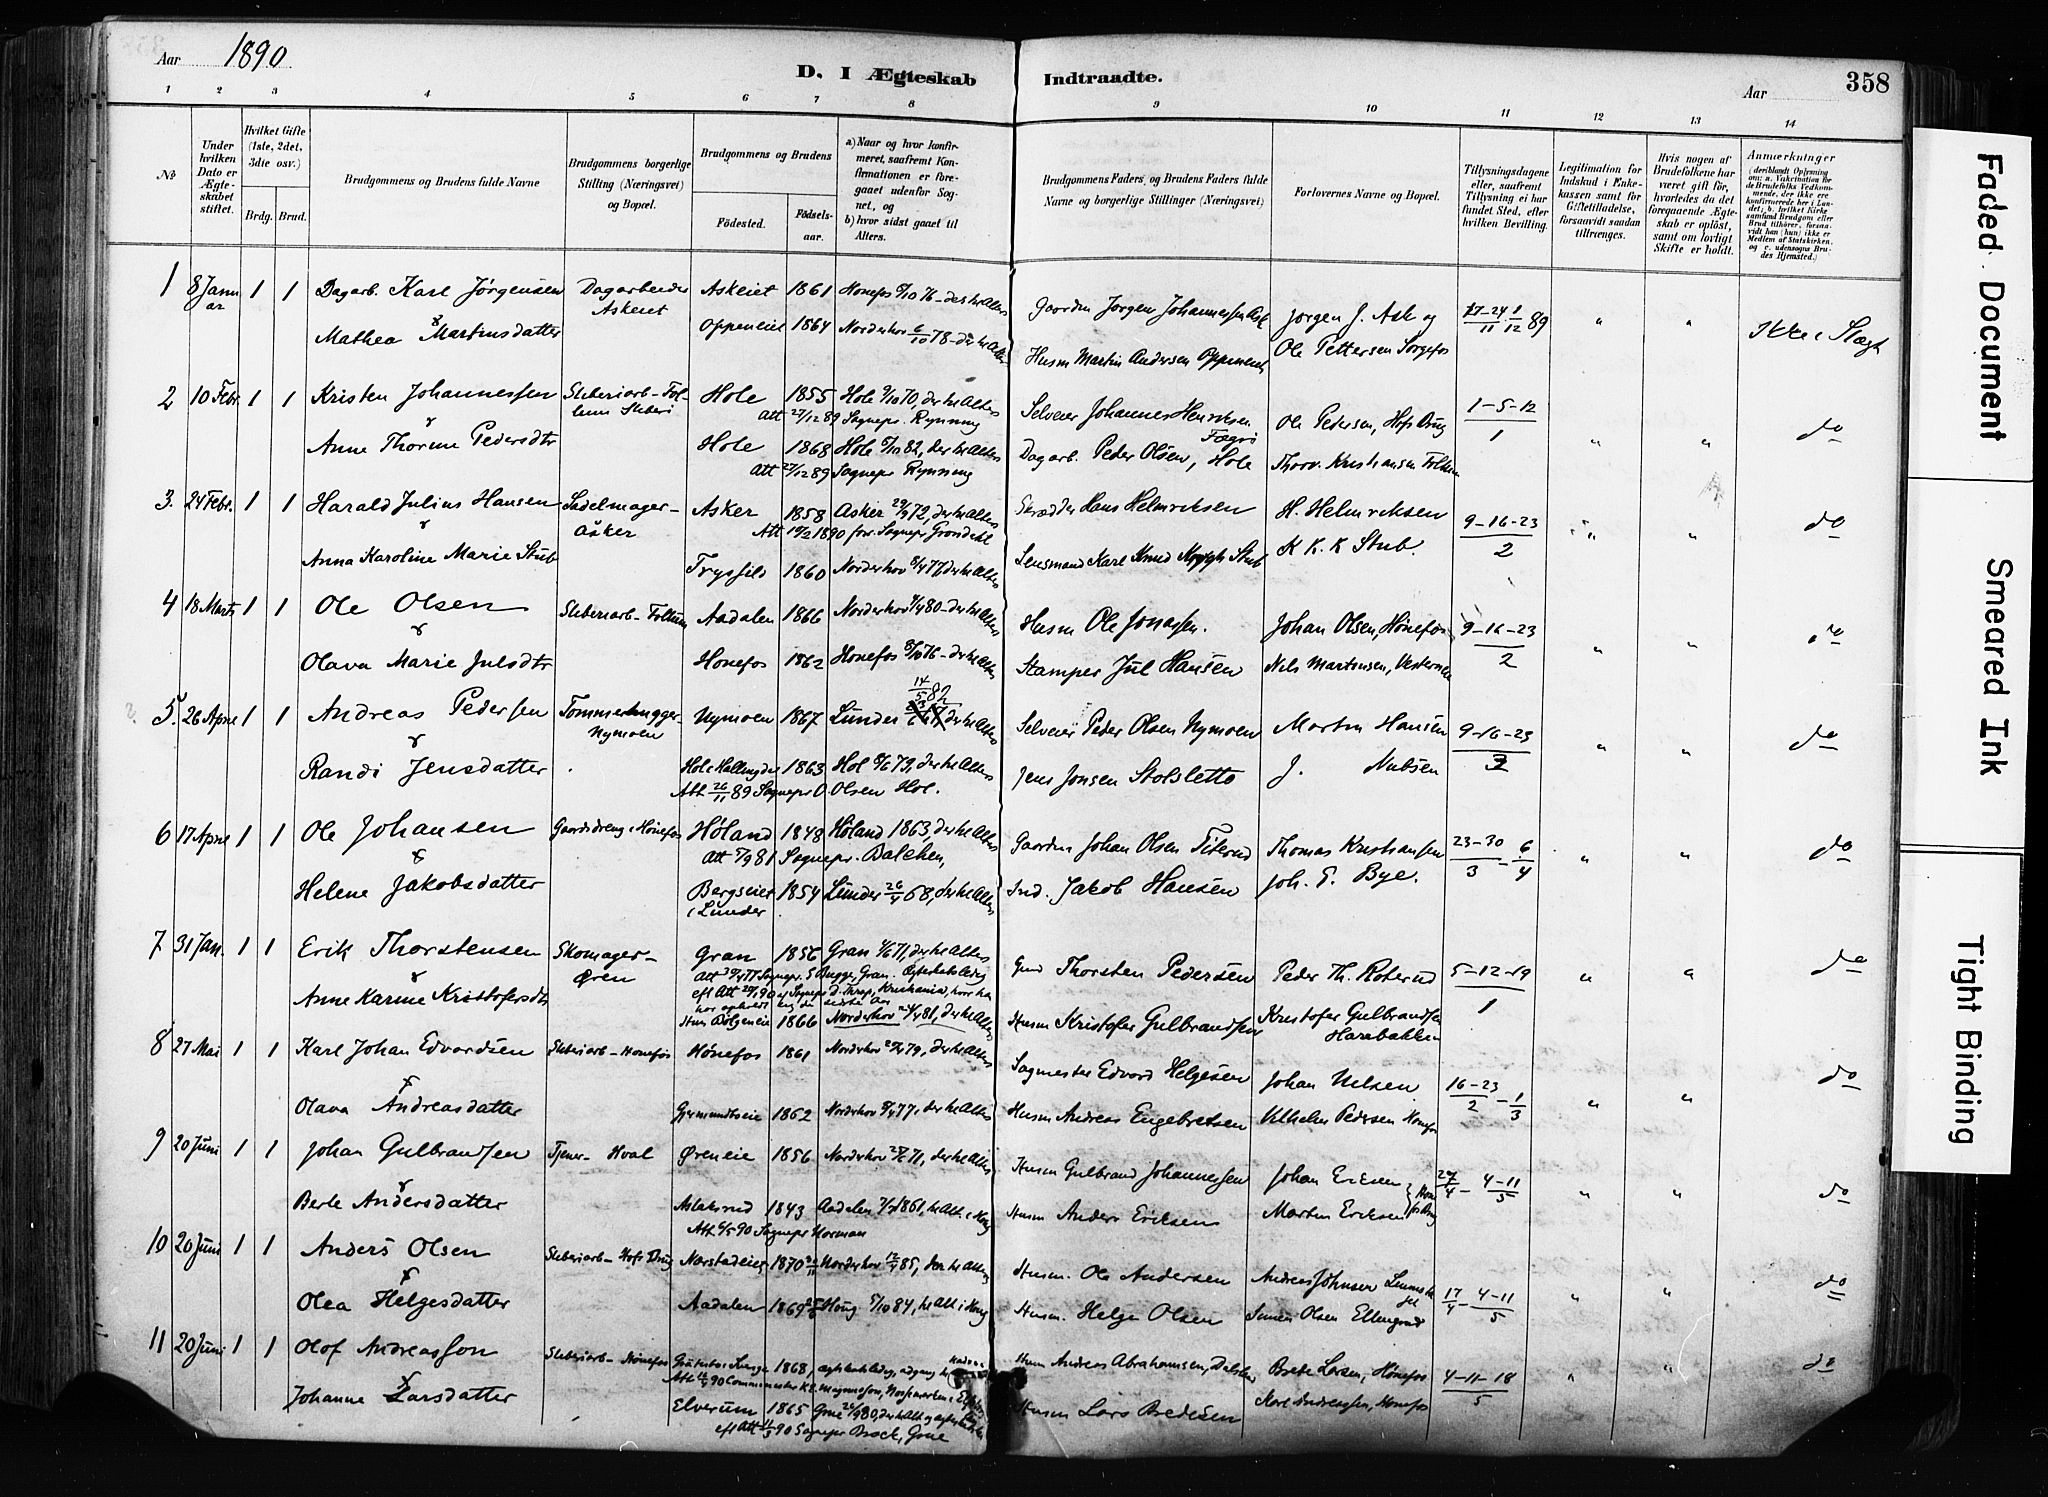 Aar 1890
D. I Ægteskab Indtraadte.
Aar
358
1 2 3 4 5 6 7 8 9 10 11 12 13 14
No
Under hvilken Dato er Ægteskabet stiftet.
Hvilket Gifte (1ste, 2det, 3die osv.)
Brdg. Brud.
Brudgommens og Brudens fulde Navne
Brudgommens borgerlige Stilling (Næringsvei) og Bopæl.
Brudgommens og Brudens
Fødested. Fødselsaar.
a) Naar og hvor konfirmeret, saafremt Konfirmationen er foregaaet udenfor Sognet, og
b) hvor sidst gaaet til Alters.
Brudgommens Faders, og Brudens Faders fulde Navne og borgerlige Stillinger (Næringsvei)
Forlovernes Navne og Bopæl.
Tillysningsdagene eller, saafremt Tillysning ei har fundet Sted, efter hvilken Bevilling.
Legitimation for Indskud i Enkekassen samt for Giftetilladelse, forsaavidt saadan tiltrænges.
Hvis nogen af Brudefolkene har været gift før, hvorledes da det foregaaende Ægteskab er opløst, samt om lovligt Skifte er holdt.
Anmerkninger (deriblandt Oplysning om: a. Vaccination for de Brudefolks Vedkommende, der ikke ere konfirmerede her i Landet; b. hvilket Kirkesamfund Brudgom eller Brud tilhører, forsaavidt han (hun) ikke er Medlem af Statskirken, og c. udensogns Brudes Hjemsted.)
1 8 Januar 1 1 Dagarb. Karl Jørgensen Dagarbeider Askeiet Askeiet 1861 Gaardm Jørgen Johannessen Ask Jørgen J. Ask og 17-24/11 1/12 89 " " Ikke i Slægt
&
Mathea Martinsdatter Oppeneiet 1864 Norderhov 6/10 78 - der hr Alters Husm Martin Andersen Oppeneiet Ole Pettersen Sørgefos
2 10 Febr. 1 1 Kristen Johannessen Sliberiarb - Follum Sliberi Hole 1855 Hole 9/10 70, der hr Alters Selveier Johannes Henriksen Ole Pedersen, Hofs Brug 1-5-12/1 " " do
& Att 27/12 89 Sognepr. Rynning
Anne Thorine Pedersdtr Hole 1868 Hole 8/10 82, der hr Alters Dagarb. Peder Olsen, Hole Thorv. Kristiansen Follum
Att 27/12 89 Sognepr Rynning
3. 24 Febr. 1 1 Harald Julius Hansen Sadelmager - Asker Asker 1858 Asker 29/9 72, der hr Alters Skrædder Hans Helmriksen H. Helmriksen 9-16-23/2 " " do
& Att 19/2 1890 for Sognepr Grøndahl
Anna Karoline Marie Stub Trysild 1860 Norderhov 8/4 77, der hr Alters Lensmand Karl Knud Stub K. K. K Stub.
4 18 Marts 1 1 Ole Olsen Sliberiarb - Follum Aadalen 1866 Norderhov 4/4 80 - der hr Alters Husm Ole Jonassen. Johan Olsen, Hønefos 9-16-23/2 " " do
&
Olava Marie Julsdtr Hønefos 1862 Hønefos 8/10 76 - der hr Alters Stamper Jul Hansen Nils Martinsen,
5. 26 April 1 1 Andreas Pedersen Tømmerhugger - Nymoen Nymoen 1867 Lunder 14/5 82 der hr Alters Selveier Peder Olsen Nymoen Martin Hansen 9-16-23/3 " " do
&
Randi Jensdatter Hol i Hallingdal 1863 Hol 8/6 79, der hr Alters Jens Jonsen Stolsletto J. Nubsen
Att 26/11 89 Sognepr O. Olsen Hol.
6 17 April 1 1 Ole Johansen Gaardsdreng i Hønefos Høland 1848 Høland 1863, der hr Alters Gaardm Johan Olsen Titerud Thomas Kristiansen 23-30/3 - 6/4 " " do
& Att 5/9 81 Sognepr. Balchen,
Helene Jakobsdatter Bergseiet i Lunder 1854 Lunder 26/4 68, der hr Alters Ind. Jakob Hansen Joh. E. Bye.
7 31 Jan. 1 1 Erik Thorstensen Skomager - Øren Gran 1856 Gran 4/6 71, der hr Alters Thorsten Pedersen Peder Th. Roterud 5-12-19/1 " " do
& Sognepr. S Bugge, Gran. Ægteskabsledig
efl Att 20/1 90 af Sognepr D. Thrap, Kristiania, hvor han har opholdt sig det sidste Aar
Anne Karine Kristofersdtr 1866 Norderhov 24/4 81, der hr Alters Husm Kristofer Gulbrandsen Kristofer Gulbrandsen Harabakken
8 27 Mai 1 1 Karl Johan Edvardsen Sliberiarb - Hønefos Hønefos 1861 Norderhov 20/4 79, der hr Alters Sagmester Edvard Helgesen Johan Nilsen 16-23/2 - 1/3 " " do
&
Olava Andreasdatter Gjermundboeie 1862 Norderhov 8/4 77, der hr Alters Husm Andreas Engebretsen Vilhelm Pedersen Hønefos
9 20 Juni 1 1 Johan Gulbrandsen Tjener - Hval Øreneie 1856 Norderhov der hr Alters Husm Gulbrand Johannessen Johan Eriksen 27/4 - 4-11/5 " " do
&
Berte Andersdatter Aslaksrud 1843 Aadalen 1861, hr Alt. i Haug Husm Anders Eriksen Martin Eriksen
Att 6/5 90 Sognepr Horman
10 20 Juni 1 1 Anders Olsen Sliberiarb - Hofs Brug Narstadeiet 1870 Norderhov 12/4 85, der hr Alters Husm. Ole Andersen Andreas Johnsen 17/4 - 4-11/5 " " do
&
Olea Helgesdatter Aadalen 1869 Haug 5/10 84, hr Alt i Haug Husm. Helge Olsen Simen Olsen
11 20 Juni 1 1 Olof Andreasson Sliberiarb - Hønefos 1868, Husm Andreas Abrahamsen, Brede Larsen, Hønefos 4-11-18/5 " " do
&
Johanne Larsdatter Elverum 1865 Grue Husm Lars Bredesen Karl Andreassen, Hønefos
efl Att 11/5 90 Sognepr Brock, Grue
Faded Document
Smeared Ink
Tight Binding